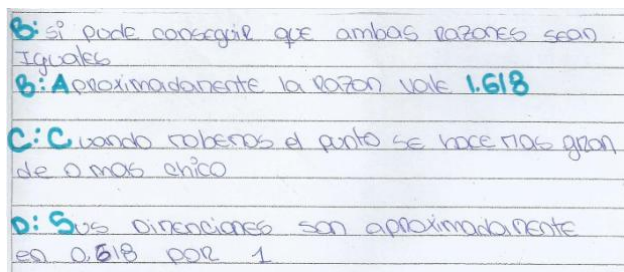 B: si pude conseguir que ambas razones sean
Iguales
B: Aproximadamente la razon vale 1.618
C: Cuando robemos el punto se hace mas gran
de o mas chico
D: Sus dimenciones son aproximadamente
en 0.618 por 1